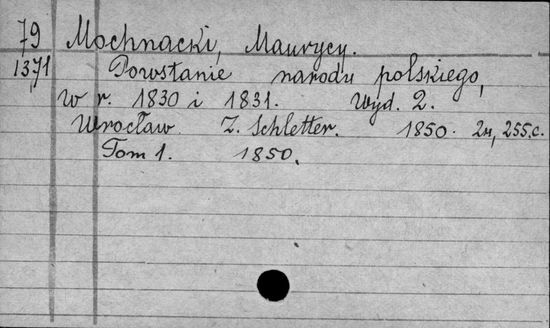 79 Mochnacki, Maurycy.
1371 Powstanie narodu polskiego,
w r. 1830 i 1831. Wyd. 2.
Wrocław. Z. Schletter. 1850. 2н, 255.c.
Tom 1. 1850.